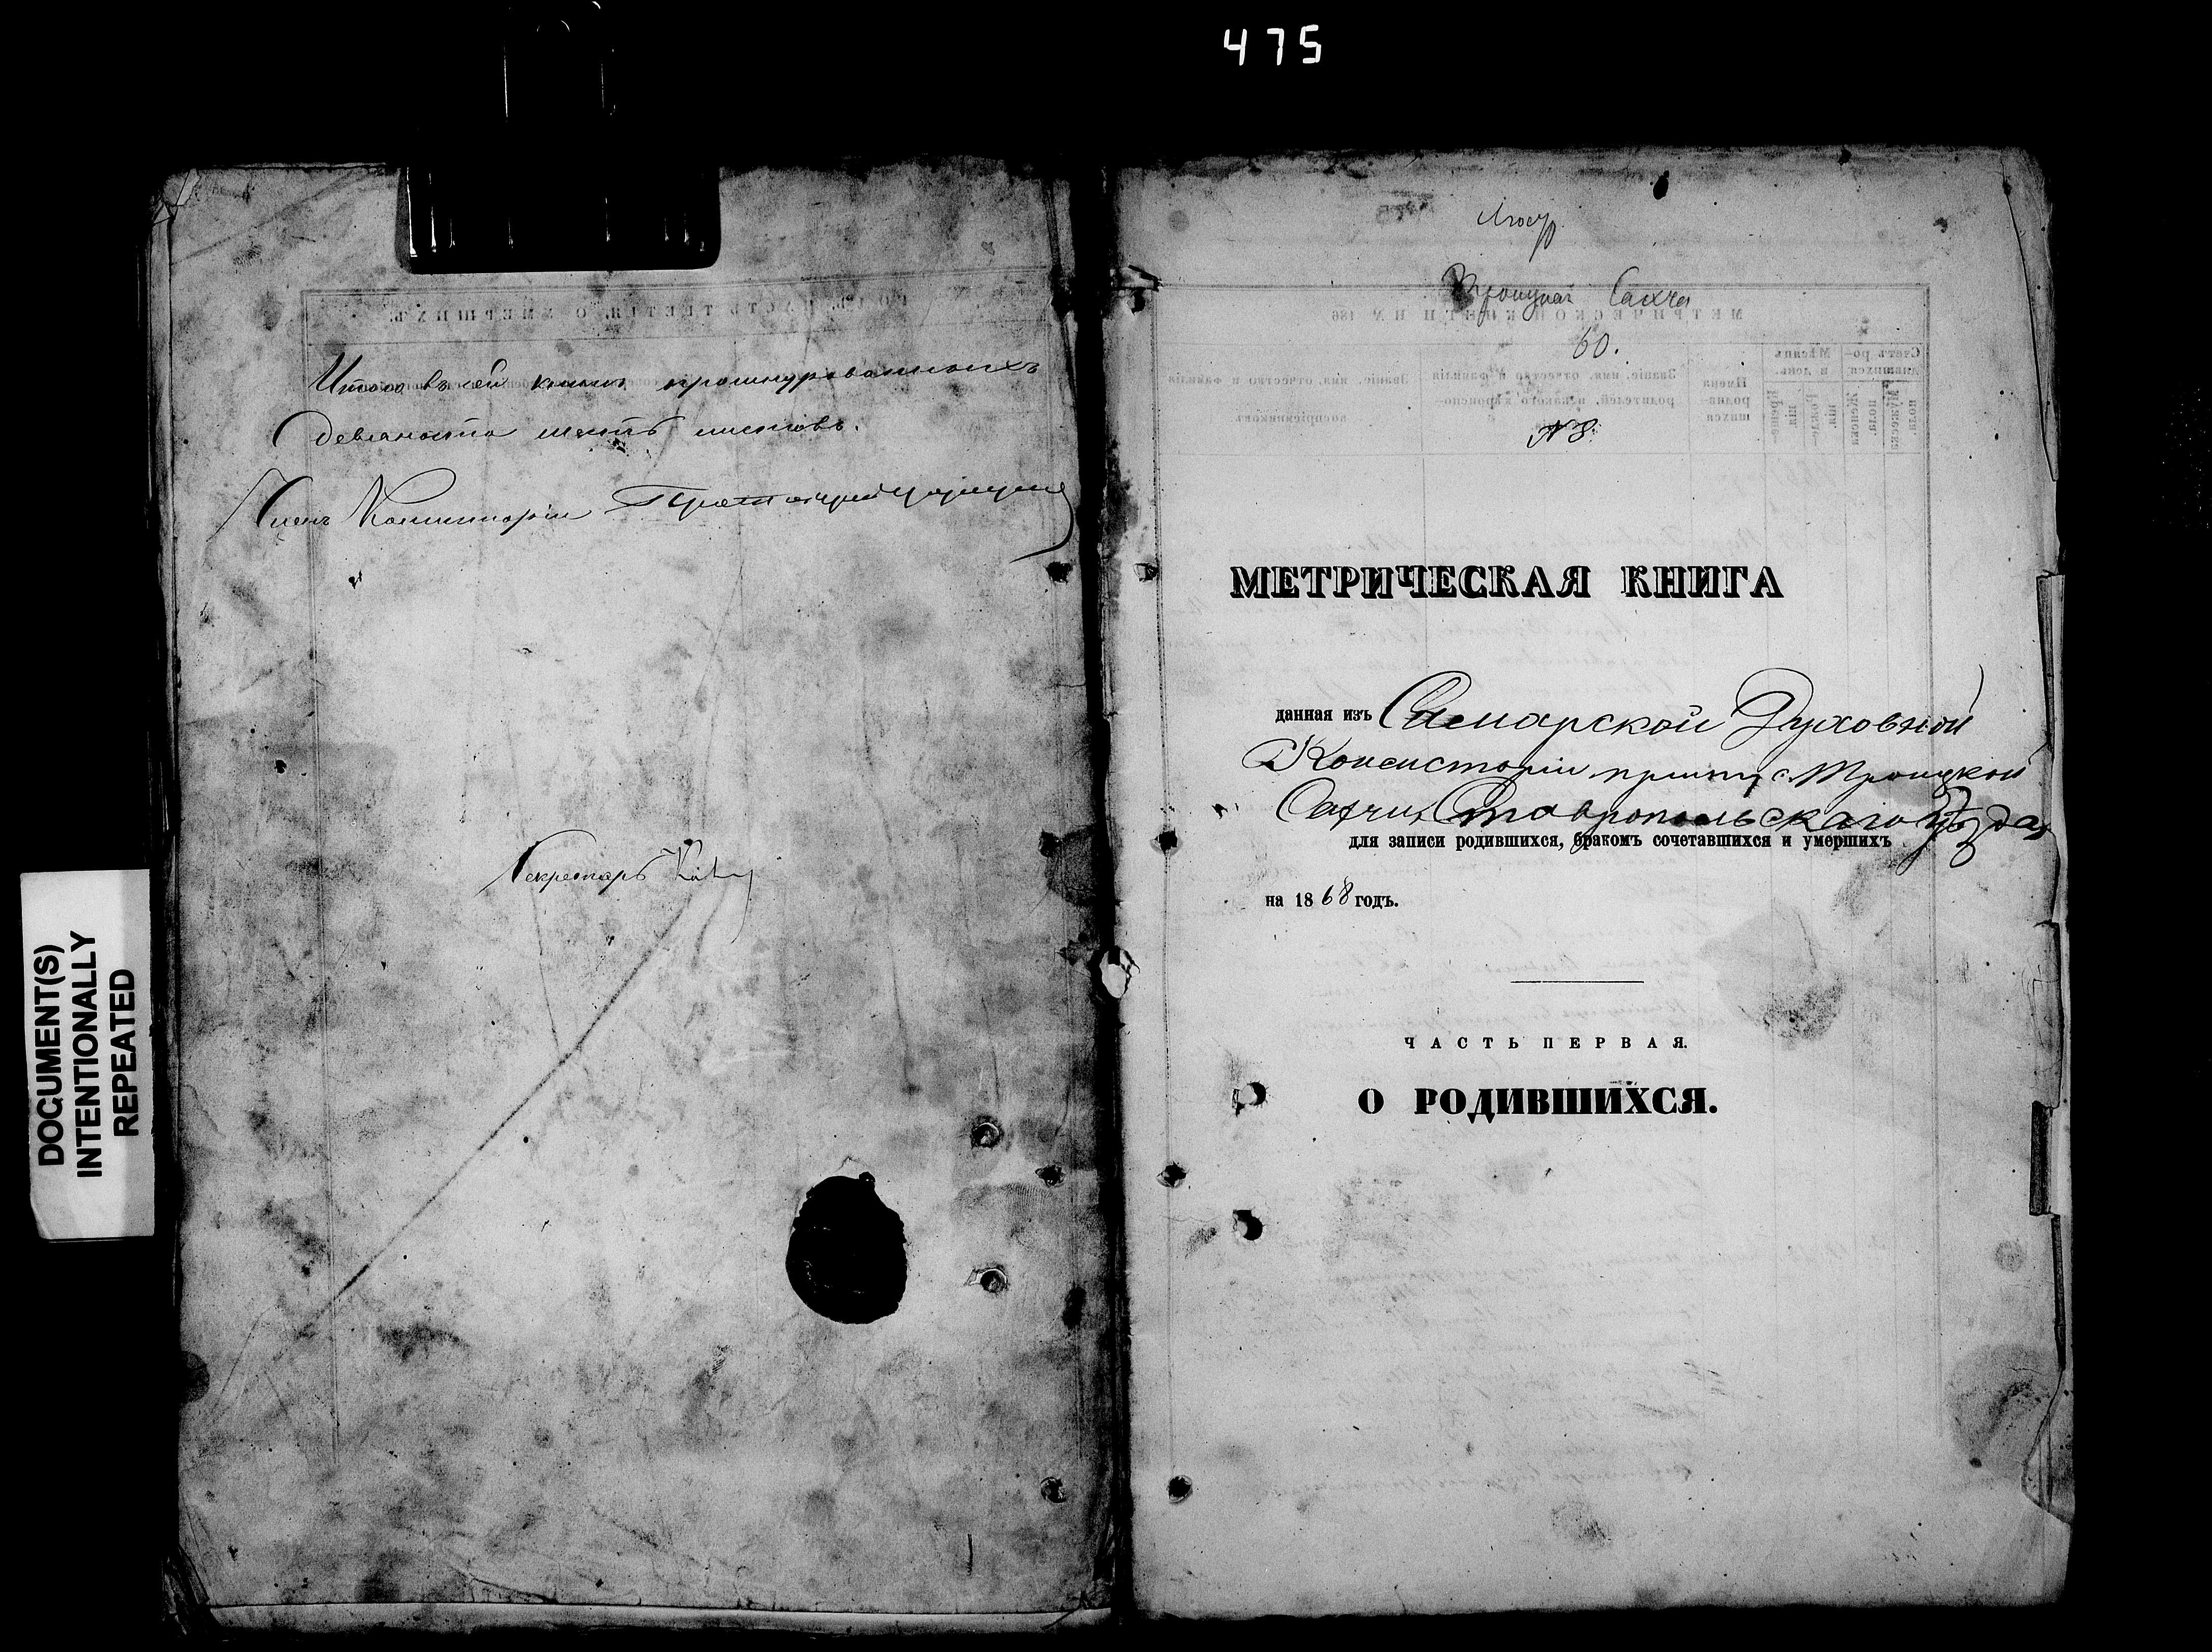 475
Итого въ сей книгѣ прошнурованныхъ
девяносто шесть листовъ.
Членъ Консисторіи Протоіерей
Секретарь
DOCUMENT(S)
INTENTIONALLY
REPEATED
Троицкая Сахча
60.
№ 8.
МЕТРИЧЕСКАЯ КНИГА
данная изъ Самарской Духовной
Консисторіи причту с. Троицкой
Сахчи, Ставропольскаго Уѣзда,
для записи родившихся, бракомъ сочетавшихся и умершихъ
на 1868 годъ.
ЧАСТЬ ПЕРВАЯ.
О РОДИВШИХСЯ.